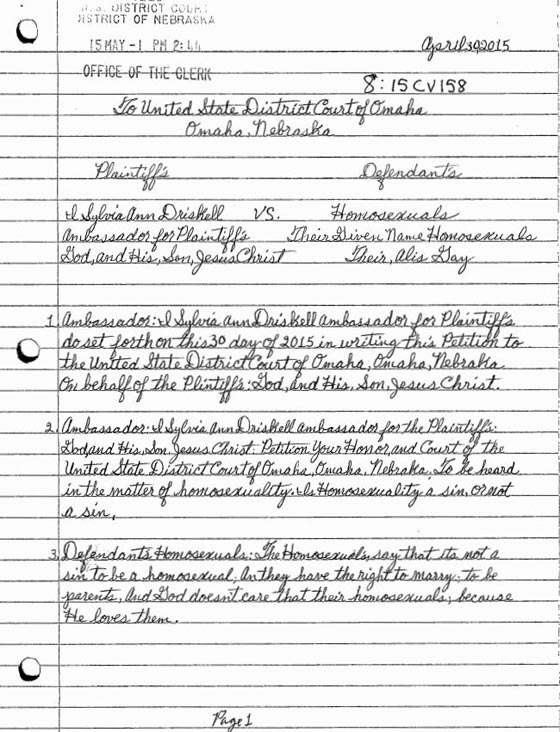 U.S. DISTRICT COURT
DISTRICT OF NEBRASKA
15 MAY -1 PM 2:44
April 30, 2015
OFFICE OF THE CLERK
8:15CV158
To United State District Court of Omaha
Omaha, Nebraska
Plaintiff's Defendants
I Sylvia Ann Driskell VS. Homosexuals
Ambassador for Plaintiff's Their Given Name Homosexuals
God, and His, Son, Jesus Christ Their, Alis Gay
1. Ambassador: I Sylvia Ann Driskell Ambassador for Plaintiff's
do set forth on this 30 day of 2015 in writing this Petition to
the United State District Court of Omaha, Omaha, Nebraka.
On behalf of the Plintiff's: God, and His, Son, Jesus Christ.
2. Ambassador: I Sylvia Ann Driskell ambassador for the Plaintiff's:
God and His, Son, Jesus Christ: Petition Your Honor, and Court of the
United State District Court of Omaha, Omaha, Nebraka, To be heard
in the matter of homosexuality. Is Homosexuality a sin, or not
a sin.
3. Defendants Homosexuals: The Homosexuals, say that its not a
sin to be a homosexual; An they have the right to marry; to be
parents, And God doesn't care that their homosexuals; because
He loves them.
Page 1